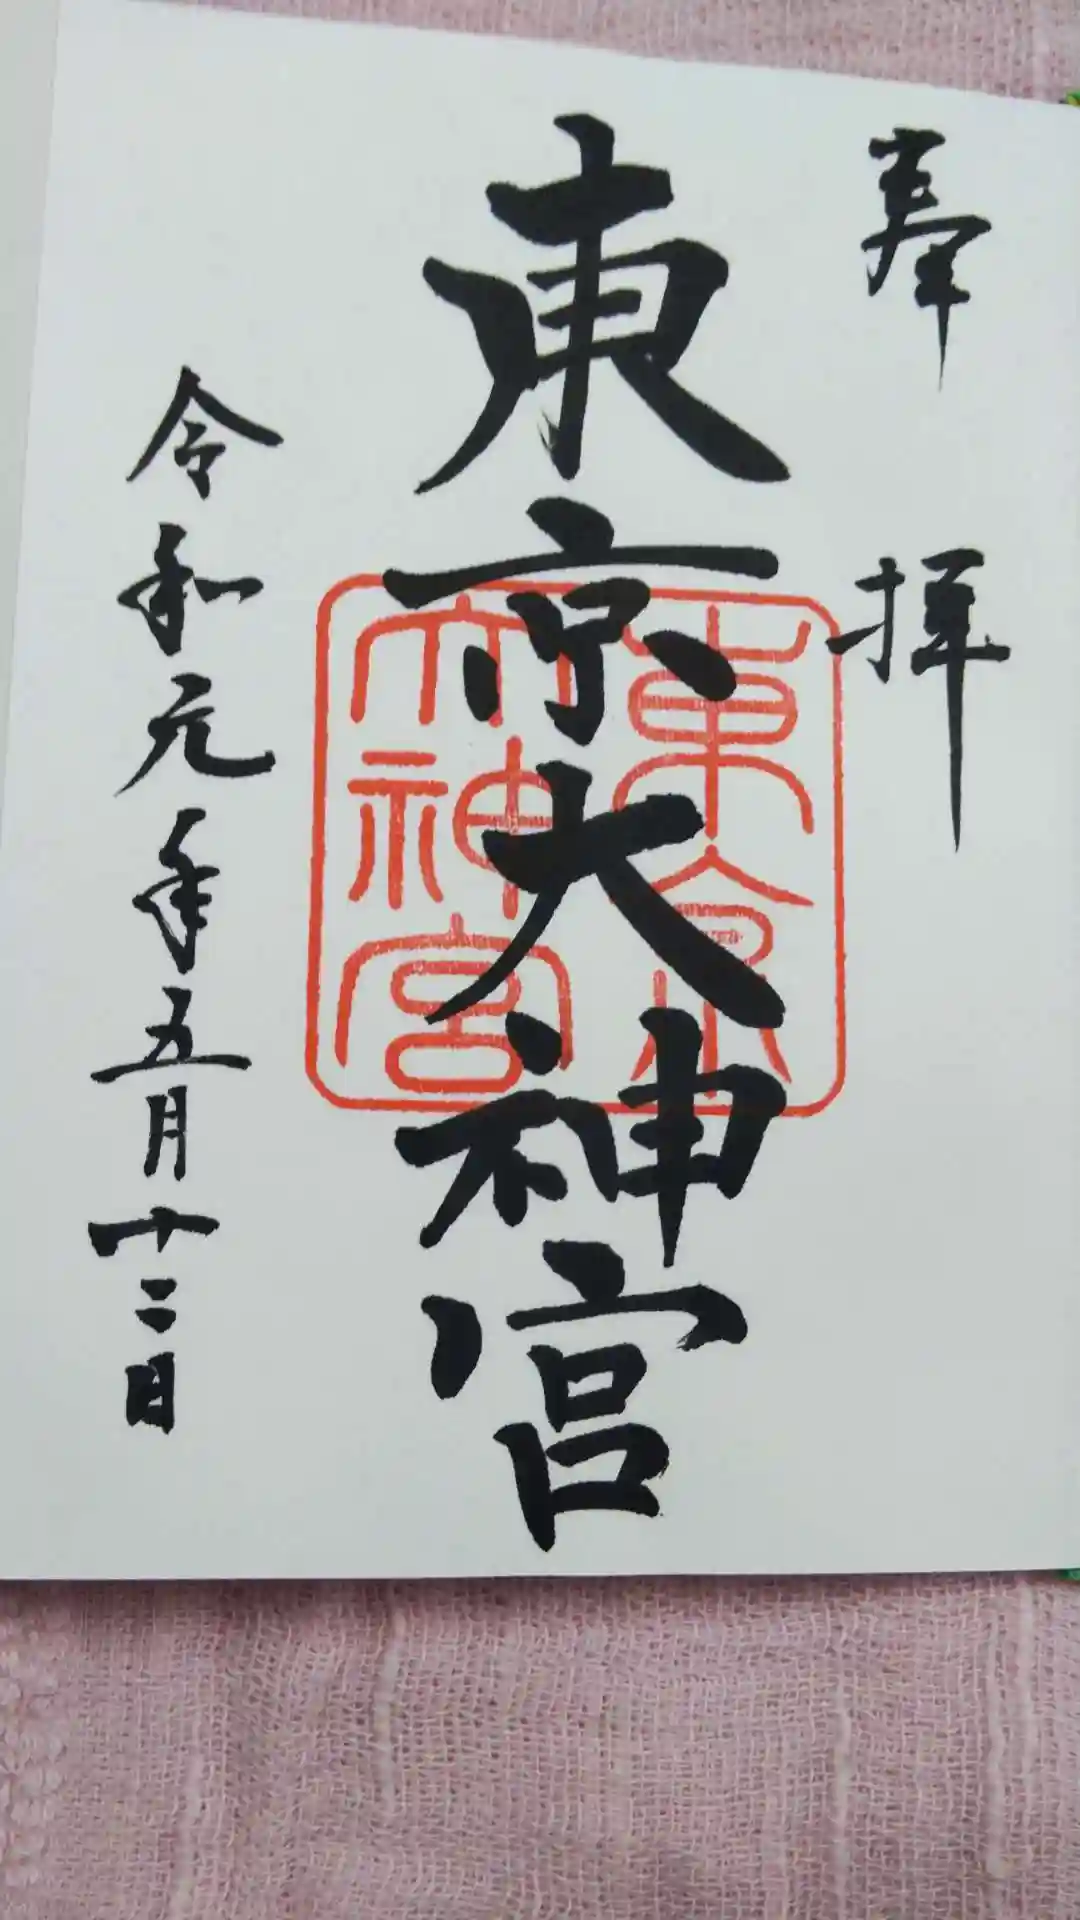 奉拝
東京大神宮
東京
大神宮
令和元年五月十二日